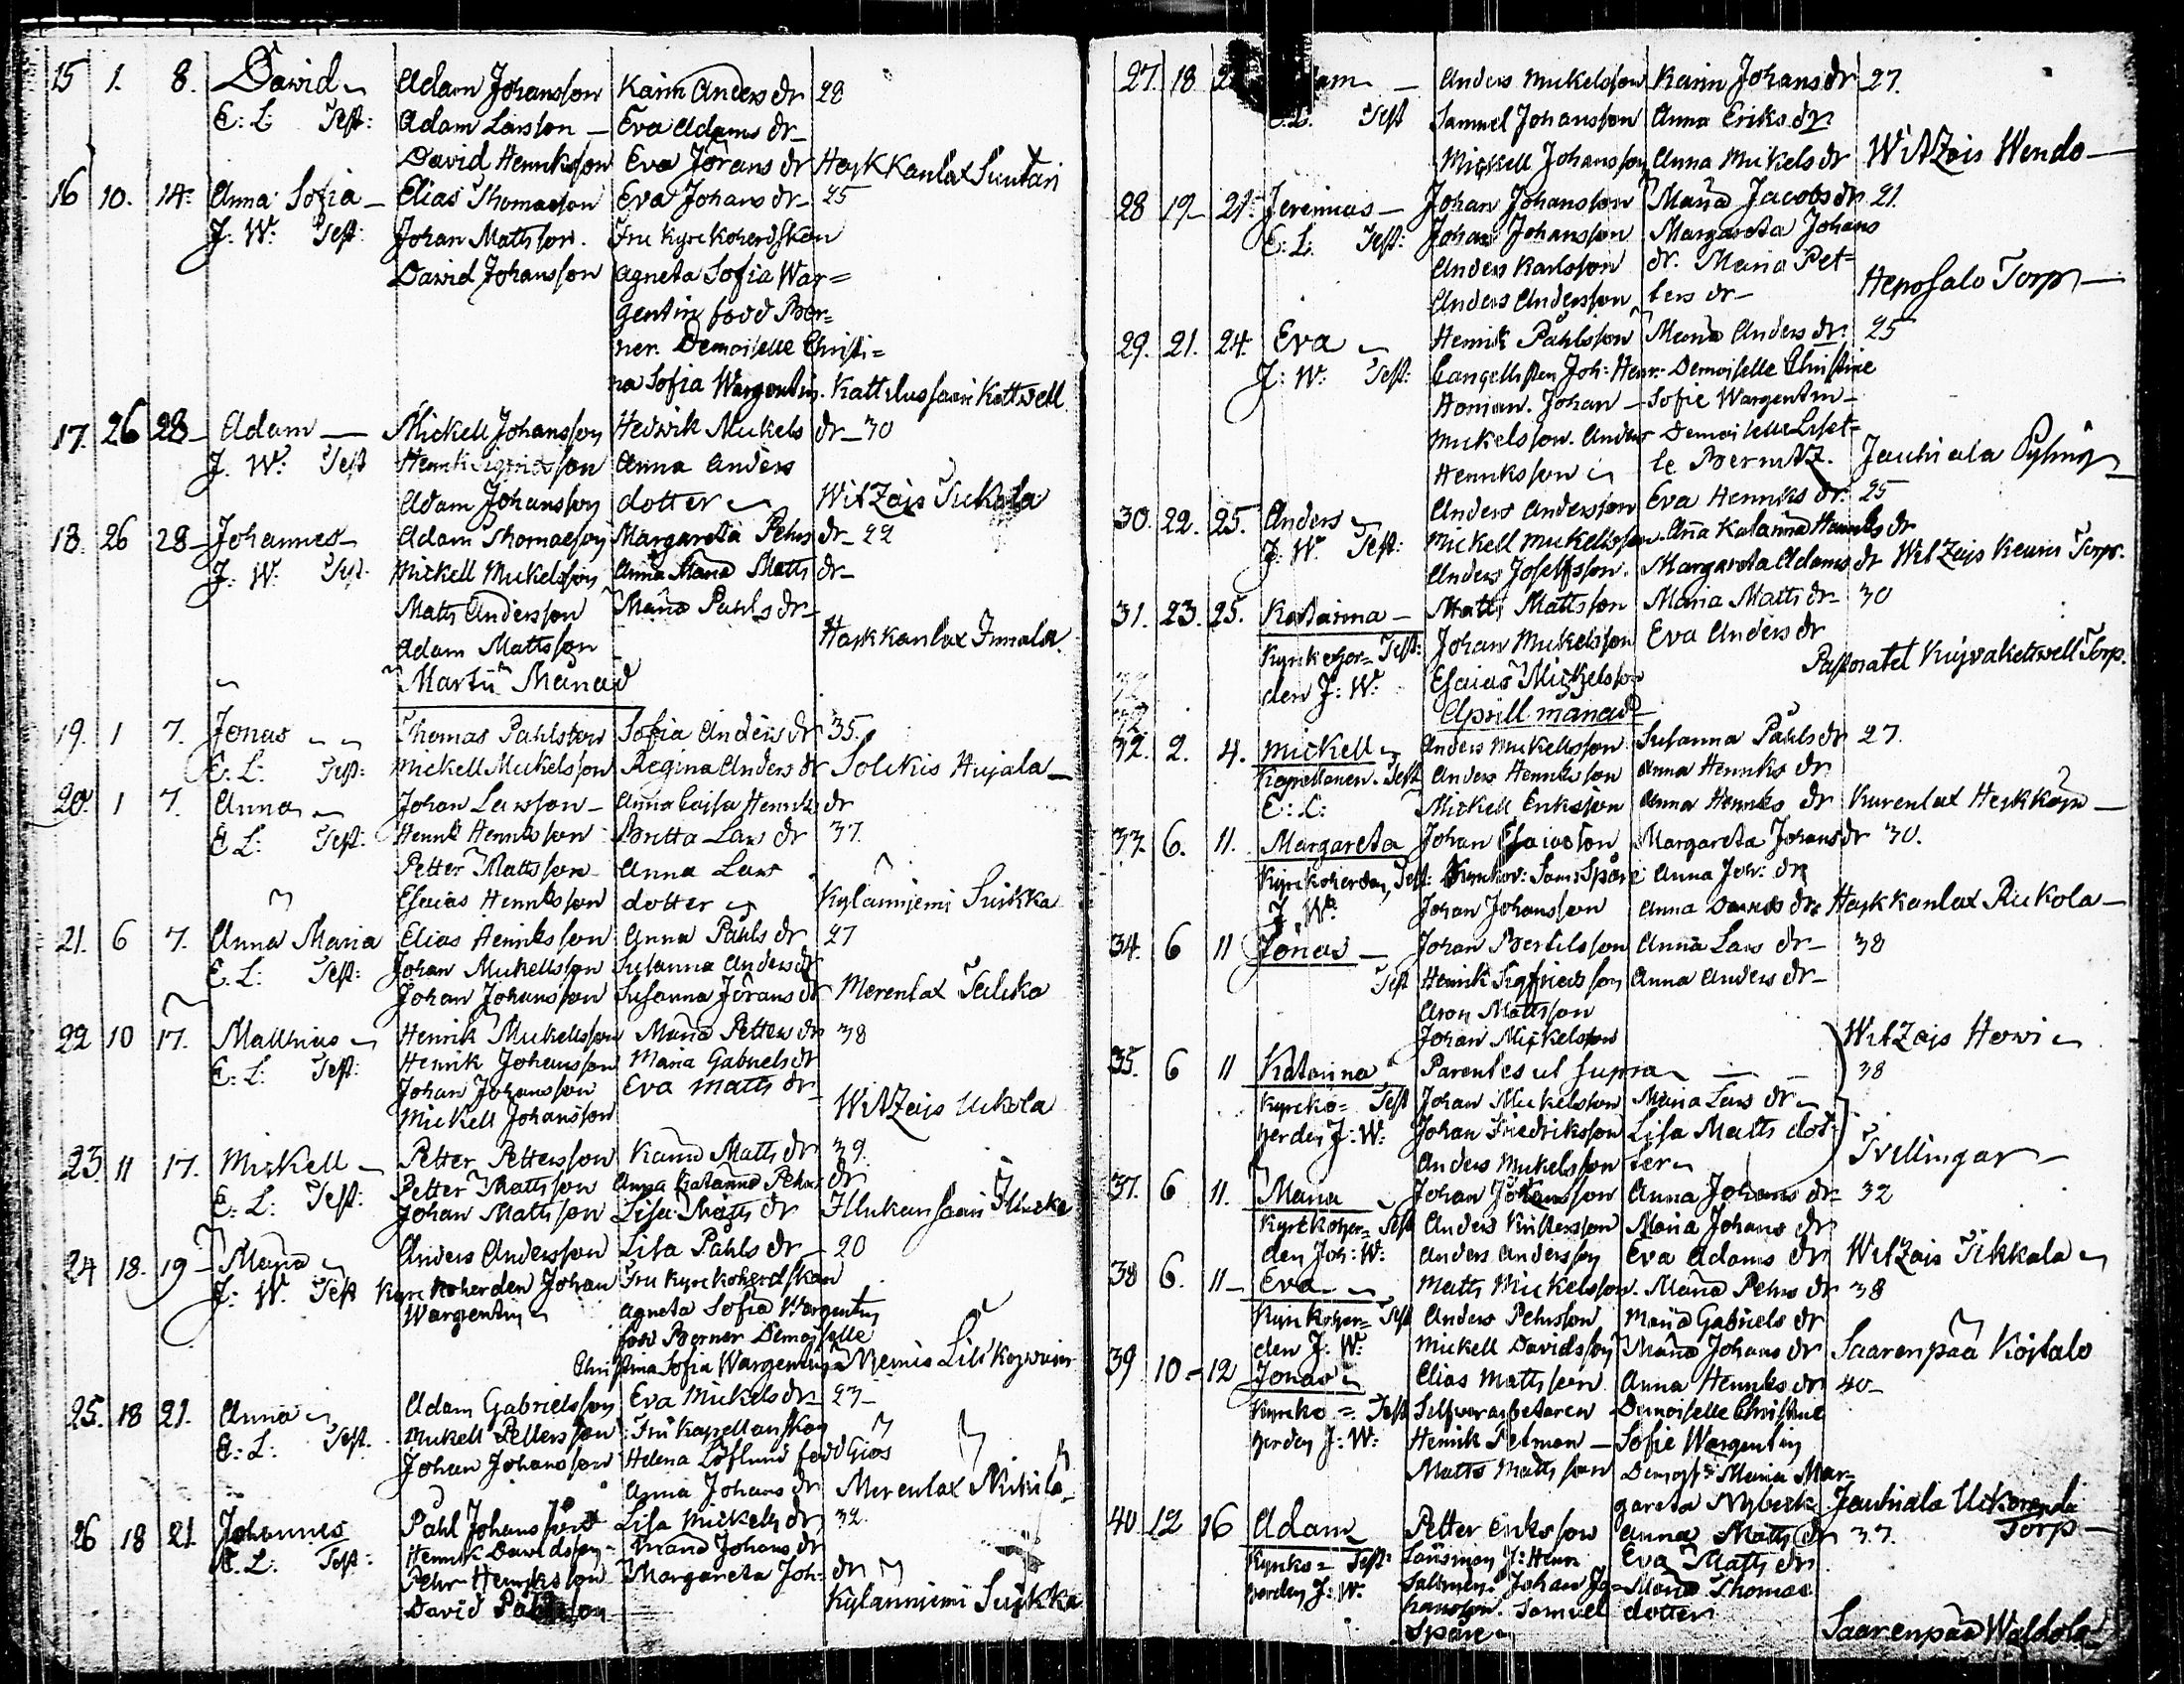 15 1. 8. David Adam Johansson Karin Anders dr 28
E: L: Test: Adam Larsson — Eva Adams dr
David Henriksson Eva Jörans dr Haikkanlax Suutari
16 10. 14. Anna Sofia — Elias Thomasson Eva Johans dr 25
J: W: Test: Johan Mattsson. Fru Kyrckoherdskan
David Johansson Agneta Sofia War=
gentin född Ber=
ner. Demoiselle Christi=
na Sofia Wargentin. Kattilussaari Kattvell
17. 26 28 Adam — Mickell Johansson Hedvik Mickels dr 30
J. W: Test Henrik Sigfridsson Anna Anders
Adam Johansson dotter WitZais Tickala
18. 26 28 Johannes Adam Thomasson Margareta Pehrs dr 22
J: W: Test Mickell Mickelsson Anna Maria Matts dr
Matts Andersson Maria Pahls dr
Adam Mattsson Haikkanlax Immala
Martii Månad
19. 1 7. Jonas Thomas Pahlsson Sofia Anders dr 35.
E: L: Test: Mickell Mickelsson Regina Anders dr Solkis Hujala
20. 1 7. Anna Johan Larsson Anna Caisa Henriks dr
E L: Test: Henrik Henriksson Britta Lars dr 37.
Petter Mattsson Anna Lars
Esaias Henriksson dotter Kylänniemi Suikka
21. 6 7. Anna Maria Elias Henriksson Anna Pahls dr 27
E. L: Test: Johan Mickellsson Susanna Anders dr
Johan Johansson Susanna Jörans dr Merenlax
22 10 17. Matthias Henrik Mickellsson Maria Petters dr 38
E: L: Test: Henrik Johansson Maria Gabriels dr
Johan Johansson Eva Matts dr
Mickell Johansson WitZais Uckola
23 11 17. Mickell Petter Pettersson Karin Matts dr 39.
E. L: Test: Petter Mattsson Anna Katarina Pehrs dr
Johan Mattsson Lisa Matts dr
24 18. 19 Maria Anders Andersson Lisa Pahls dr 20
J: W. Test Kyrckoherden Johan Fru Kyrckoherdskan
Wargentin Agneta Sofia Wargentin
född Berner Demoiselle
Christina Sofia Wargentin
25. 18 21. Anna Adam Gabrielsson Eva Mickels dr 27
E: L: Test. Mickell Pettersson Fru Kapellanskan
Johan Johansson Helena Löflund född Gios
Anna Johans dr Merenlax Nikilä
26 18 21 Johannes Pahl Johansson Lisa Mickels dr 32
E. L: Test: Henrik Davidsson Maria Johans dr
Pehr Henriksson Margareta Joh: dr
David Kylänniemi Suikka
27. 18 Anders Mickelsson Karin Johans dr 27.
E.L. Test Samuel Johansson Anna Eriks dr
Mickell Johansson Anna Mickels dr WitZais Wendo
28 19 21. Jeremias — Johan Johansson Maria Jacobs dr 21.
E: L: Test: Johan Johansson Margareta Johans
Anders Karlsson dr. Maria Pet=
Anders Andersson ters dr Heposalo Torp
29. 21. 24. Eva Henrik Pahlsson Maria Anders dr: 25
J: W: Test: Cangellisten Joh: Henr: Demoiselle Christine
Homan. Johan Sofie Wargentin
Mickelsson. Anders Demoiselle Liset=
Henriksson te Bernitz. Jauhiala
30. 22. 25. Anders Anders Andersson Eva Henriks dr. 25
J: W. Test: Mickell Mickellsson Aña Katarina Henriks dr
Anders Josefsson. Margareta Adams dr WitZais Keuru Torp.
31. 23. 25. Katarina — Matts Mattsson Maria Matts dr 30
Kyrckoher= Test: Johan Mickelsson Eva Anders dr
den J: W: Esaias Mickelsson Pastoratet Torp.
Aprill månad
32. 2. 4. Mickell Anders Mickellsson Susanna Pahls dr 27.
Kapellanen. Test Anders Henriksson Anna Henriks dr
E: L: Mickell Eriksson Anna Henriks dr Kurenlax
33. 6. 11. Margareta Johan Esaiasson Margareta Johans dr 30.
Kyrckoherden Test: Sam: Spåre Anna Joh: dr
J W: Johan Johansson Anna Davids dr Haikkanlax Ruckola
34. 6 11 Jonas — Johan Bertilsson Anna Lars dr 38
Test Henrik Sigfridsson Anna Anders dr
Aron Mattsson
Johan Mickelsson WitZais Howi
35. 6 11 Katarina Parentes ut supra 38
Kyrcko= Test Johan Mickelsson Maria Lars dr
herden J: W: Johan Friedriksson Lisa Matts dot=
Anders Mickelsson ter Tvillingar
37. 6 11. Maria Johan Johansson Anna Johans dr 32
Kyrckoher= Test Anders Maria Johans dr
den Joh: W: Anders Andersson Eva Adams dr WitZais Tikkala
38 6. 11 Eva Matts Mickelsson. Maria Pehrs dr 38
Kyrckoher= Test Anders Pehrsson Maria Gabriels dr
den J: W: Mickell Davidsson Maria Johans dr Saarenpää
39 10 12 Jonas Elias Mattsson Anna Henriks dr 40
Kyrcko= Test Silfverarbetaren Demoiselle Christine
herden J: W: Henrik Petman — Sofie Wargentin
Matts Mattsson Maria Mar=
gareta Nyberk Jauhiala Torp
40 12 16 Adam Petter Eriksson Anna Matts dr 37.
Kyrcko= Test: Länsman J: Henr Eva Matts dr
herden J: W. Johan Jo= Maria Thomas
hansson. Samuel dotter
Spåre Saarenpää